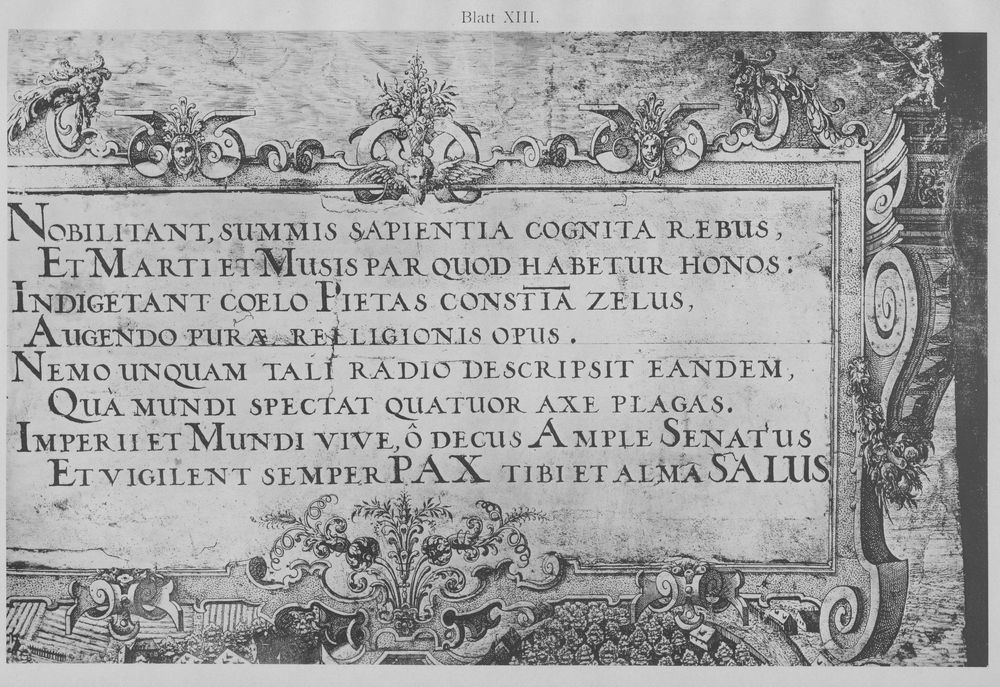 Blatt XIII.
NOBILITANT, SUMMIS SAPIENTIA COGNITA REBUS,
ET MARTI ET MUSIS PAR QUOD HABETUR HONOS:
INDIGETANT COELO PIETAS CONST͞IA ZELUS,
AUGENDO PURÆ RELLIGIONIS OPUS.
NEMO UNQUAM TALI RADIO DESCRIPSIT EANDEM,
QUA MUNDI SPECTAT QUATUOR AXE PLAGAS.
IMPERII ET MUNDI VIVE, Ô DECUS AMPLE SENATUS
ET VIGILENT SEMPER PAX TIBI ET ALMA SALUS